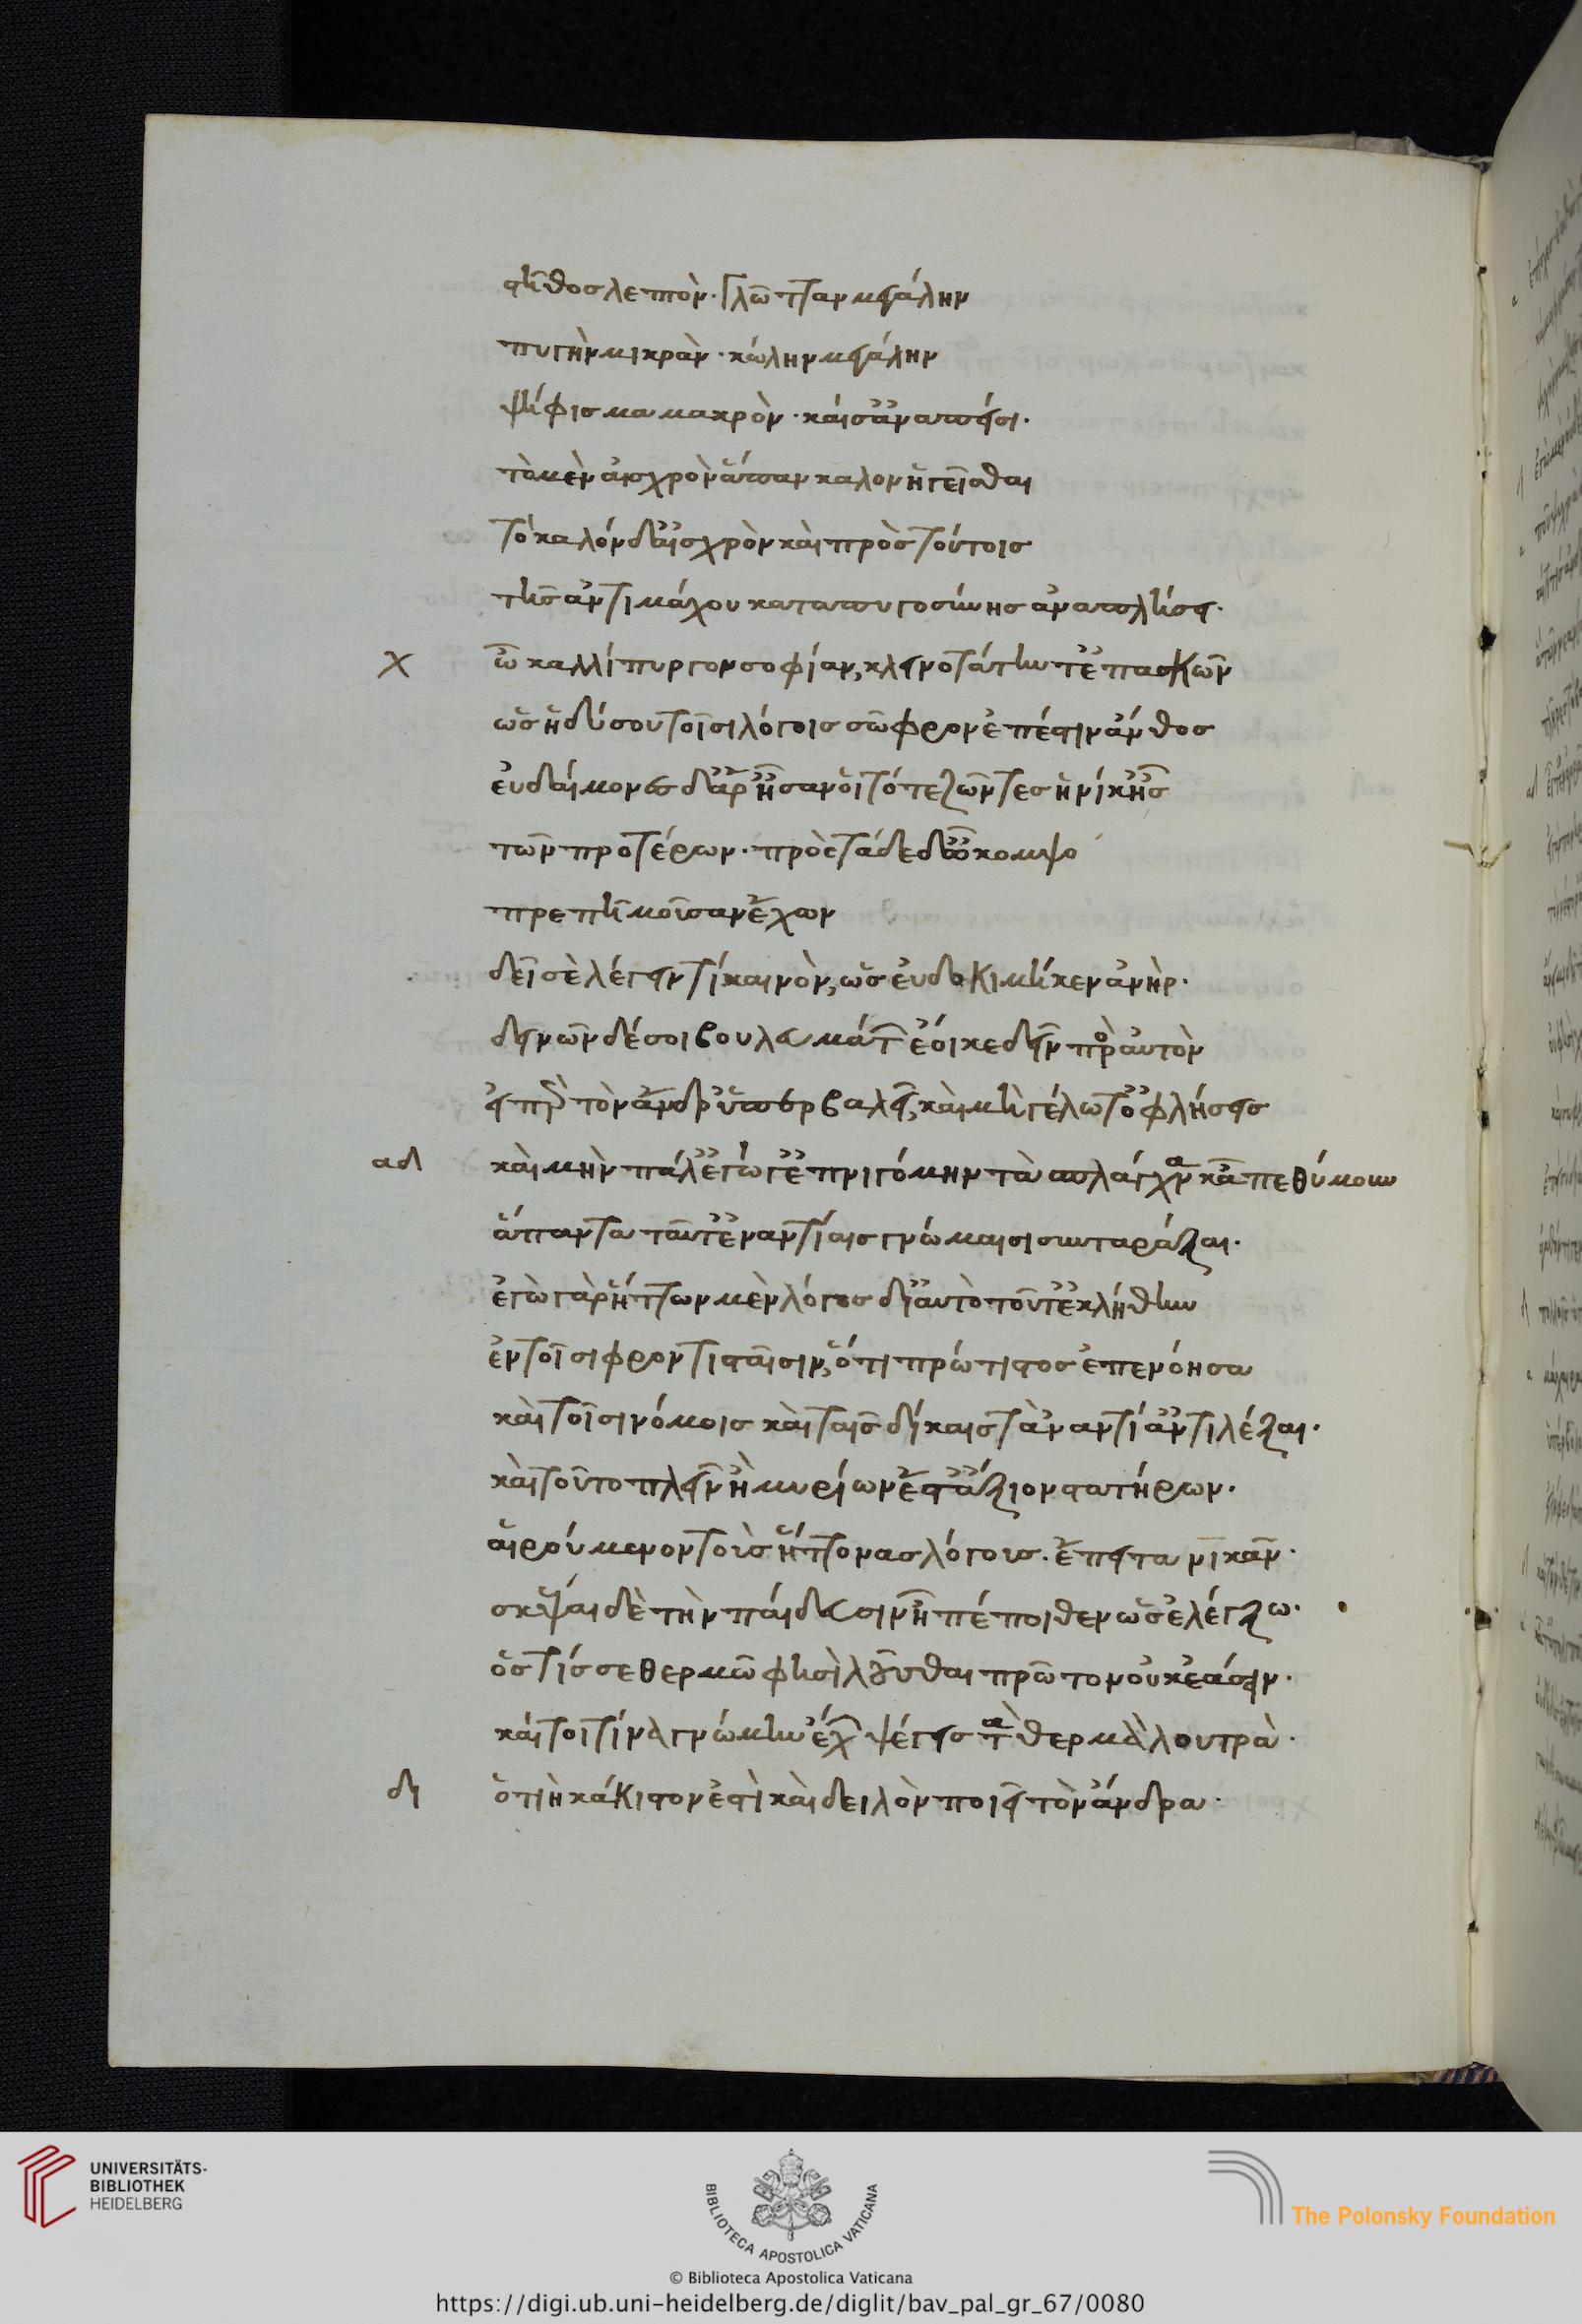 στῆθος λεπτὸν· γλῶτταν μεγάλην
πυγὴν μικρὰν· κώλην μεγάλην
ψήφισμα μακρὸν· καί σ' ἀναπείσει.
τὸ μὲν αἰσχρὸν ἅπαν καλὸν ἡγεῖσθαι
τὸ καλόν δ' αἰσχρὸν καὶ πρὸς τούτοις
τῆς ἀντιμάχου καταπυγοσύνης ἀναπλήσει·
χ ὦ καλλίπυργον σοφίαν, κλεινοτάτην τ' ἐπασκῶν
ὡς ἡδύ σου τοῖσι λόγοις σῶφρον ἐπέστιν ἄνθος
εὐδαίμονες δ' ἄρ' ἦσαν οἱ τότε ζῶντες ἡνίκ' ἦς
τῶν προτέρων· πρὸς τάδε δ' ὦ κομψο
πρεπῆ μοῦσαν ἔχων
δεῖ σὲ λέγειν τί καινὸν, ὡς εὐδοκίμηκεν ἀνὴρ·
δεινῶν δέ σοι βουλευμάτ' ἔοικε δεῖν πρὸς αὐτὸν
εἴπερ τὸν ἄνδρ' ὑπερβαλεῖ, καὶ μὴ γέλωτ' ὀφλήσεις
αδ καὶ μὴν πάλ' ἔγωγ' ἐπνιγόμην τὰ σπλάγχνα κἀπεθύμουν
ἅπαντα ταῦτ' ἐναντίαις γνώμαισι συνταράξαι·
ἐγὼ γὰρ ἥττων μὲν λόγος δι' αὐτὸ τοῦτ' ἐκλήθην
ἐν τοῖσι φροντισταῖσιν, ὅτι πρώτιστος ἐπενόησα
καὶ τοῖσι νόμοις καὶ ταῖς δίκαις τἀναντί' ἀντιλέξαι·
καὶ τοῦτο πλεῖν ἢ μυρίων ἔστ' ἄξιον στατήρων·
αἱρούμενον τοὺς ἥττονας λόγους· ἔπειτα νικᾶν·
σκέψαι δὲ τὴν παίδευσιν ᾗ πέποιθεν ὡς ἐλέγξω·
ὅστίς σε θερμῶ φησὶ λοῦσθαι πρῶτον οὐκ ἐάσειν·
καί τοι τίνα γνώμην ἔχων ψέγεις τὰ θερμὰ λουτρὰ·
δι ὁτιὴ κάκιστον ἐστὶ καὶ δειλὸν ποιεῖ τὸν ἄνδρα·
UNIVERSITÄTS-
BIBLIOTHEK
HEIDELBERG
BIBLIOTECA APOSTOLICA VATICANA
The Polonsky Foundation
© Biblioteca Apostolica Vaticana
https://digi.ub.uni-heidelberg.de/diglit/bav_pal_gr_67/0080